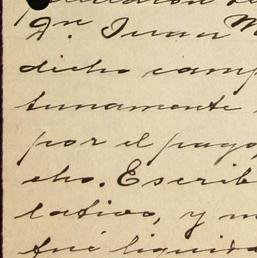 Dn. Juan M
dicho camp
tunamente
por el pago
cho. Escrib
lativo, y m
fué liquida